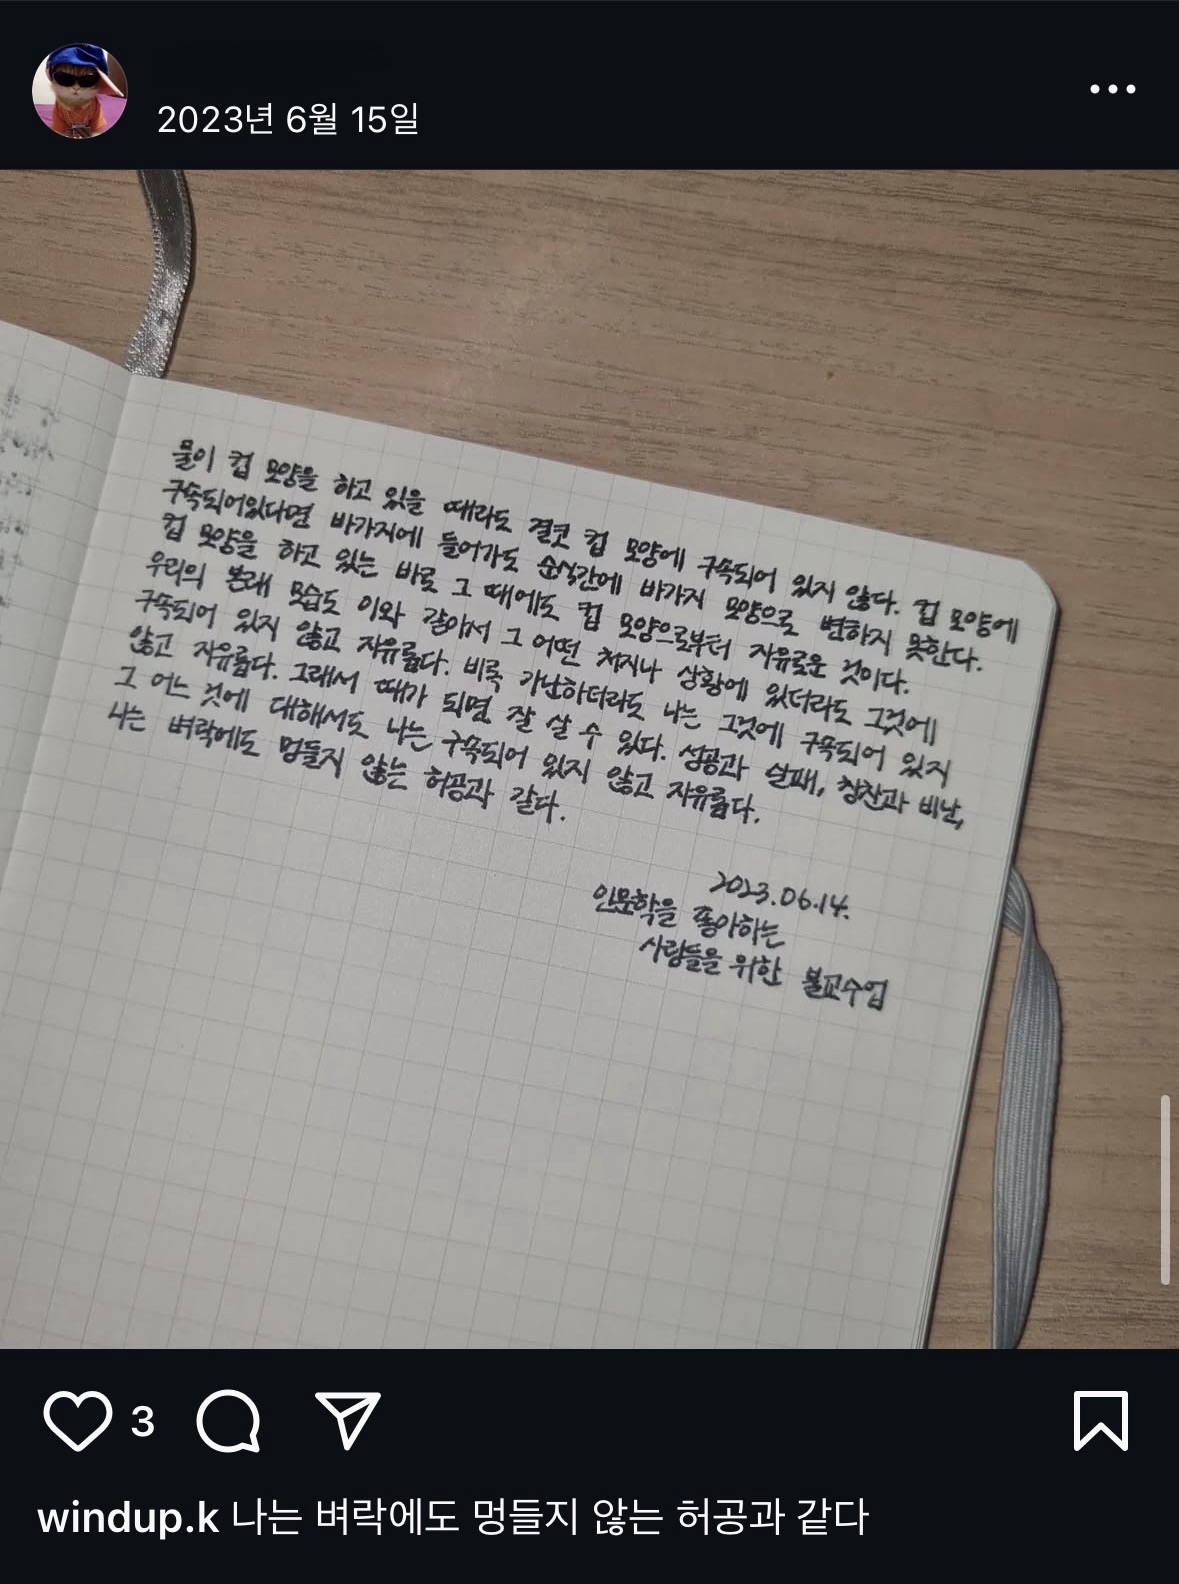 2023년 6월 15일
물이 컵 모양을 하고 있을 때라도 결코 컵 모양에 구속되어 있지 않다. 컵 모양에
구속되어있다면 바가지에 들어가도 순식간에 바가지 모양으로 변하지 못한다.
컵 모양을 하고 있는 바로 그 때에도 컵 모양으로부터 자유로운 것이다.
우리의 본래 모습도 이와 같아서 그 어떤 처지나 상황에 있더라도 그것에
구속되어 있지 않고 자유롭다. 비록 가난하더라도 나는 그것에 구속되어 있지
않고 자유롭다. 그래서 때가 되면 잘 살 수 있다. 성공과 실패, 칭찬과 비난,
그 어느 것에 대해서도 나는 구속되어 있지 않고 자유롭다.
나는 벼락에도 멍들지 않는 허공과 같다.
2023.06.14.
인문학을 좋아하는
사람들을 위한 불교수업
3
windup.k 나는 벼락에도 멍들지 않는 허공과 같다